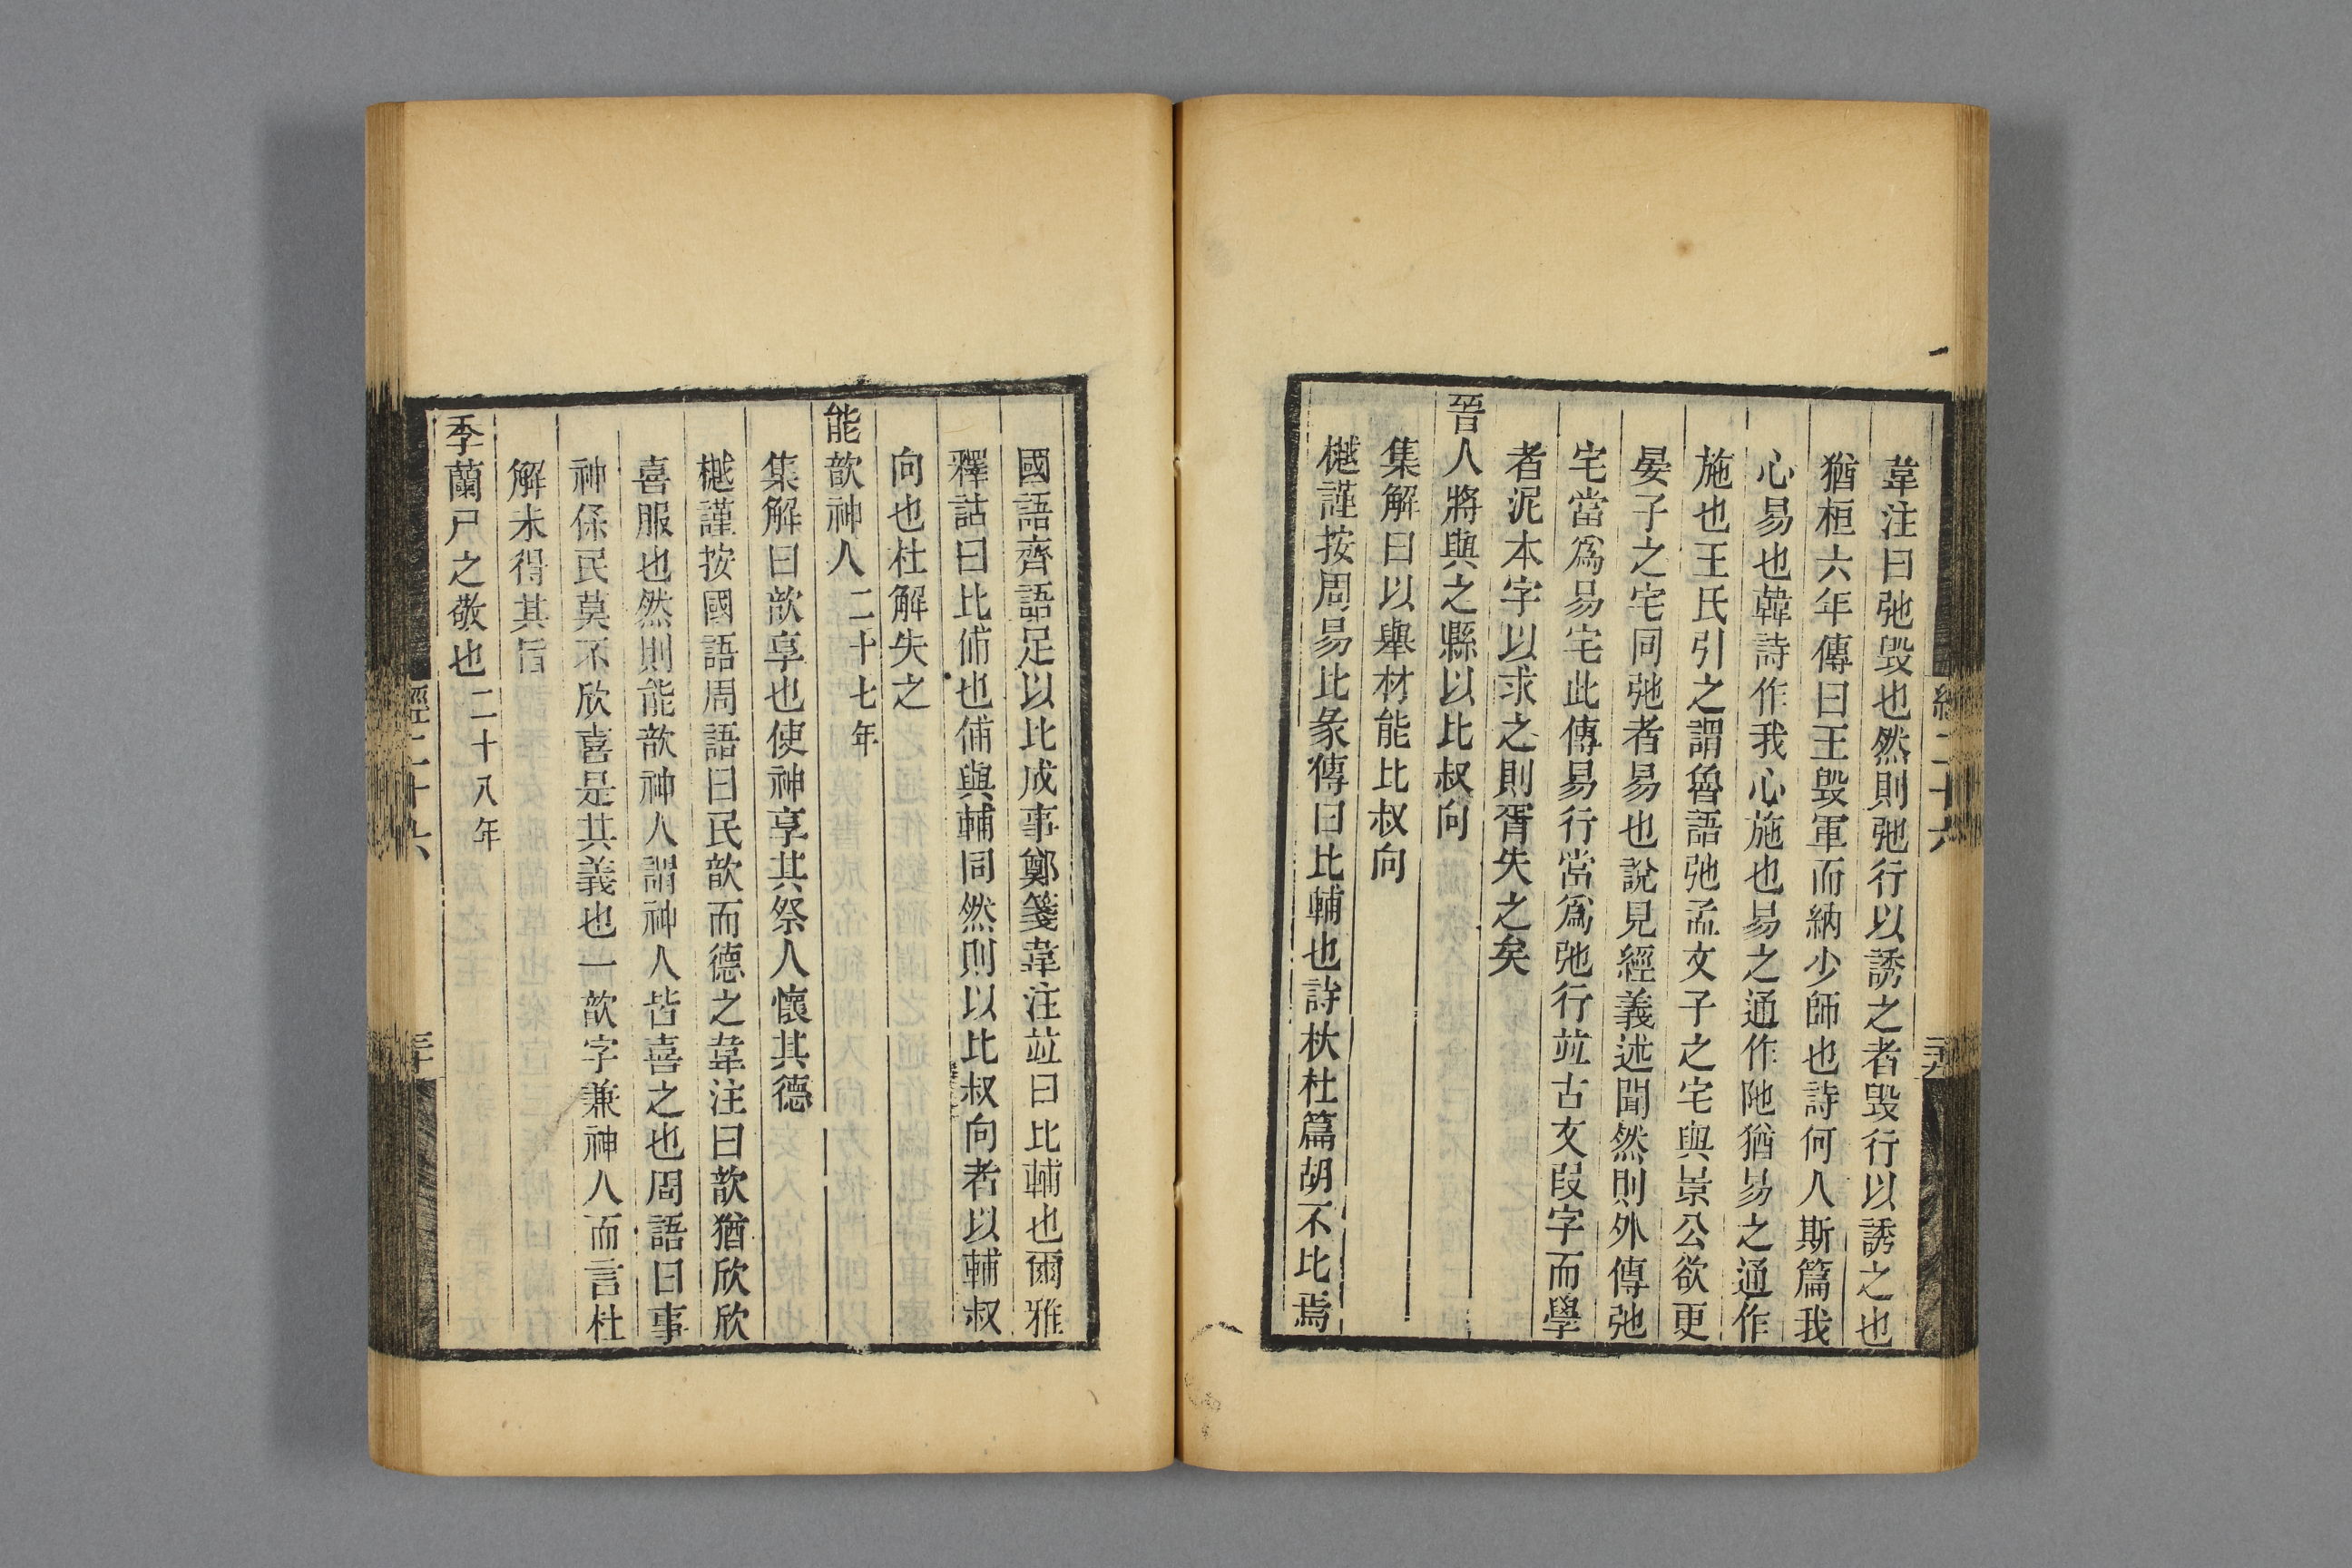 韋注曰弛毀也然則弛行以誘之者毀行以誘之也
猶桓六年傳曰王毀軍而納少師也詩何人斯篇我
心易也韓詩作我心施也易之通作阤猶易之通作
施也王氏引之謂魯語弛孟文子之宅與景公欲更
晏子之宅同弛者易也說見經義述聞然則外傳弛
宅當爲易宅此傳易行當爲弛行竝古文叚字而學
者泥本字以求之則胥失之矣
晉人將與之縣以比叔向
集解曰以舉材能比叔向
樾謹按周易比彖傳曰比輔也詩杕杜篇胡不比焉
國語齊語足以比成事鄭箋韋注竝曰比輔也爾雅
釋詁曰比俌也俌與輔同然則以比叔向者以輔叔
向也杜解失之
能歆神人二十七年
集解曰歆享也使神享其祭人懷其德
樾謹按國語周語曰民歆而德之韋注曰歆猶欣欣
喜服也然則能歆神人謂神人皆喜之也周語曰事
神保民莫不欣喜是其義也一歆字兼神人而言杜
解未得其旨
季蘭尸之敬也二十八年
經二十六